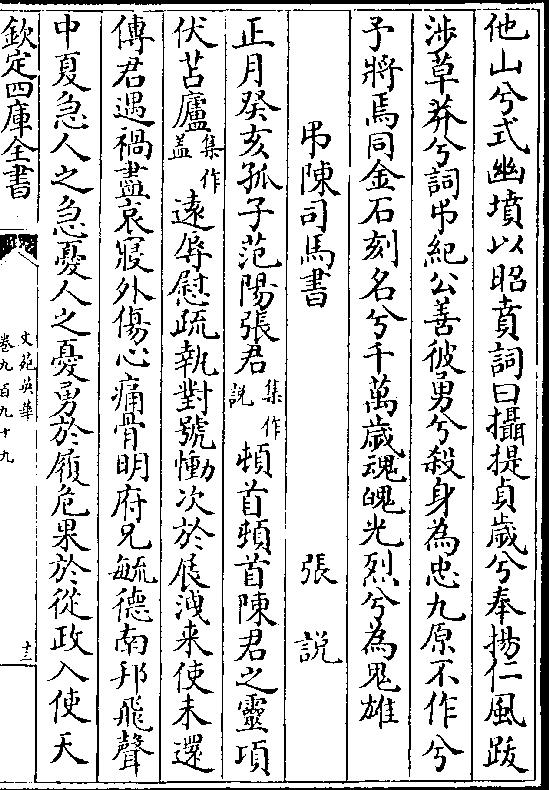 他山兮式幽墳以昭賁詞曰攝提貞歲兮奉揚仁風跋
涉草莽兮詞弔紀公善彼勇兮殺身為忠九原不作兮
予將焉同金石刻名兮千萬歲魂魄光烈兮為鬼雄
弔陳司馬書 張說
正月癸亥孤子范陽張君集作說頓首頓首陳君之靈項
伏苫廬集作盖遠辱慰疏執對號慟次於展洩来使未還
傳君遇禍盡哀寢外傷心痛骨明府兄毓德南邦飛聲
中夏急人之急憂人之憂勇於履危果於從政入使天
欽定四庫全書
文苑英華
卷九百九十九
十二